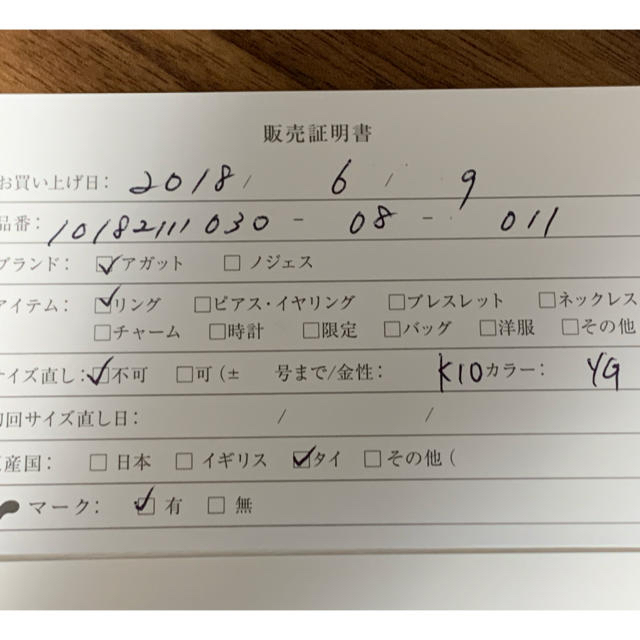 販売証明書
お買い上げ日: 2018/ 6 / 9
品番: 10182111030 - 08 - 011
ブランド: ☑アガット □ ノジェス
アイテム: ☑リング □ピアス・イヤリング □ブレスレット □ネックレス
□チャーム □時計 □限定 □バッグ □洋服 □その他
サイズ直し: ☑不可 □可 (± 号まで/金性: K10カラー: YG
初回サイズ直し日: / /
原産国: □ 日本 □ イギリス ☑タイ □その他 (
マーク: ☑ 有 □ 無